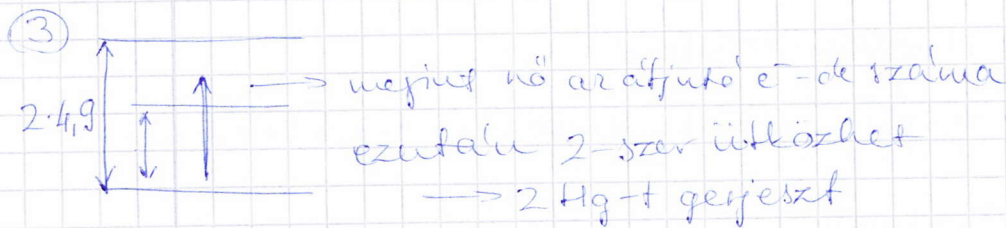 3
→ megint nő az átjutó e⁻-ok száma
2·4,9
ezután 2-szer ütközhet
→ 2 Hg-t gerjeszt